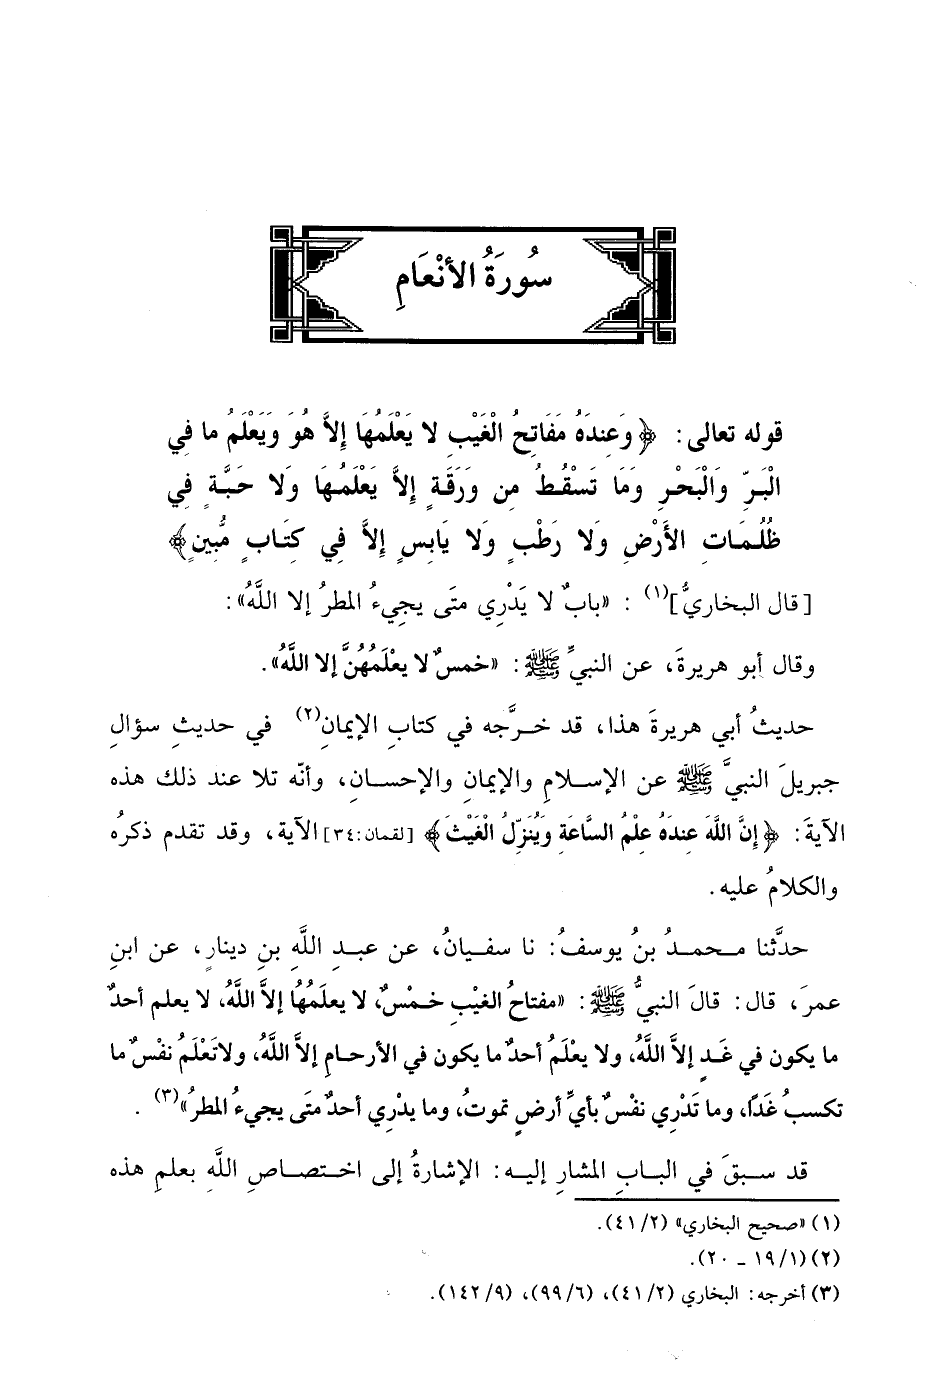 سُورَةُ الأَنْعَامِ
قوله تعالى: ﴿وَعِندَهُ مَفَاتِحُ الْغَيْبِ لا يَعْلَمُهَا إِلاَّ هُوَ وَيَعْلَمُ ما فِي
الْبَرِّ وَالْبَحْرِ وَمَا تَسْقُطُ مِن وَرَقَةٍ إِلاَّ يَعْلَمُهَا وَلا حَبَّةٍ فِي
ظُلُمَاتِ الأَرْضِ وَلا رَطْبٍ وَلا يَابِسٍ إِلاَّ فِي كِتَابٍ مُّبِينٍ﴾
[قال البخاريُّ](١) : «بابٌ لا يَدْرِي متَى يجِيءُ المطرُ إلا اللَّهُ»:
وقال أبو هريرةَ، عن النبيِّ ﷺ: «خمسٌ لا يعْلَمُهُنَّ إلا اللَّهُ».
حديثُ أبي هريرةَ هذا، قد خرَّجه في كتابِ الإيمانِ(٢) في حديثِ سؤالِ
جبريلَ النبيَّ ﷺ عن الإسلامِ والإيمانِ والإحسانِ، وأنَّه تلا عند ذلك هذه
الآيةَ: ﴿إِنَّ اللَّهَ عِندَهُ عِلْمُ السَّاعَةِ وَيُنَزِّلُ الْغَيْثَ﴾ [لقمان:٣٤] الآية، وقد تقدم ذكرُه
والكلامُ عليه.
حدَّثنا محمدُ بنُ يوسفُ: نا سفيانُ، عن عبدِ اللَّهِ بنِ دينارٍ، عن ابنِ
عمرَ، قال: قالَ النبيُّ ﷺ: «مفتاحُ الغيْبِ خمْسٌ، لا يعلَمُهَا إلاَّ اللَّهُ، لا يعلم أحدٌ
ما يكون في غَدٍ إلاَّ اللَّهُ، ولا يعْلَمُ أحدٌ ما يكون في الأرحامِ إلاَّ اللَّهُ، ولا تَعْلَمُ نفْسٌ ما
تكسبُ غَدًا، وما تَدْرِي نفْسٌ بأيِّ أرضٍ تموتُ، وما يدْرِي أحدٌ متَى يجيءُ المطرُ»(٣) .
قد سبقَ في البابِ المشارِ إليه: الإشارةُ إلى اختصاصِ اللَّهِ بعلمِ هذه
(١) «صحيح البخاري» (٤١/٢).
(٢) (١٩/١ – ٢٠).
(٣) أخرجه: البخاري (٤١/٢)، (٩٩/٦)، (١٤٢/٩).